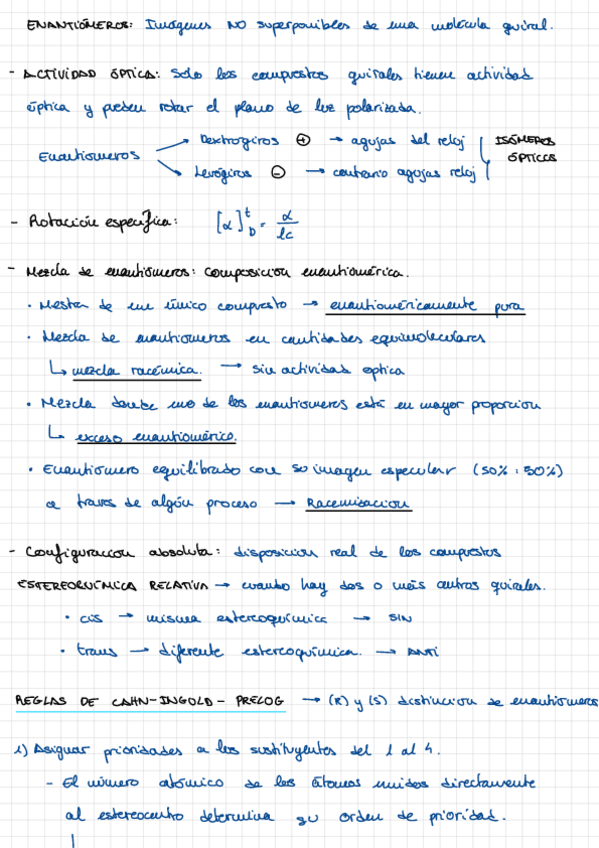 ENANTIÓMEROS: Imágenes NO superponibles de una molécula quiral.
- ACTIVIDAD ÓPTICA: Solo los compuestos quirales tienen actividad
óptica y pueden rotar el plano de luz polarizada.
Enantiómeros
Dextrogiros ⊕ → agujas del reloj
Levógiros ⊖ → contrario agujas reloj
ISÓMEROS
ÓPTICOS
- Rotación específica: [α]ᵗ_D = α / lc
- Mezcla de enantiómeros: composición enantiomérica.
· Mestra de un único compuesto → enantioméricamente pura
· Mezcla de enantiomeros en cantidades equimoleculares
↳ mezcla racémica. → sin actividad optica
· Mezcla donde uno de los enantiomeros está en mayor proporcion
↳ exceso enantiomérico.
· Enantiomero equilibrado con su imagen especular (50% : 50%)
a traves de algún proceso → Racemizacion
- Configuracion absoluta: disposicion real de los compuestos
ESTEREOQUÍMICA RELATIVA → cuando hay dos o más centros quirales.
· cis → misma estereoquímica → SIN
· trans → diferente estereoquímica. → ANTI
REGLAS DE CAHN-INGOLD-PRELOG → (R) y (S) distincion de enantiomeros
1) Asignar prioridades a los sustituyentes del 1 al 4.
- El número atómico de los átomos unidos directamente
al estereocentro determina su orden de prioridad.